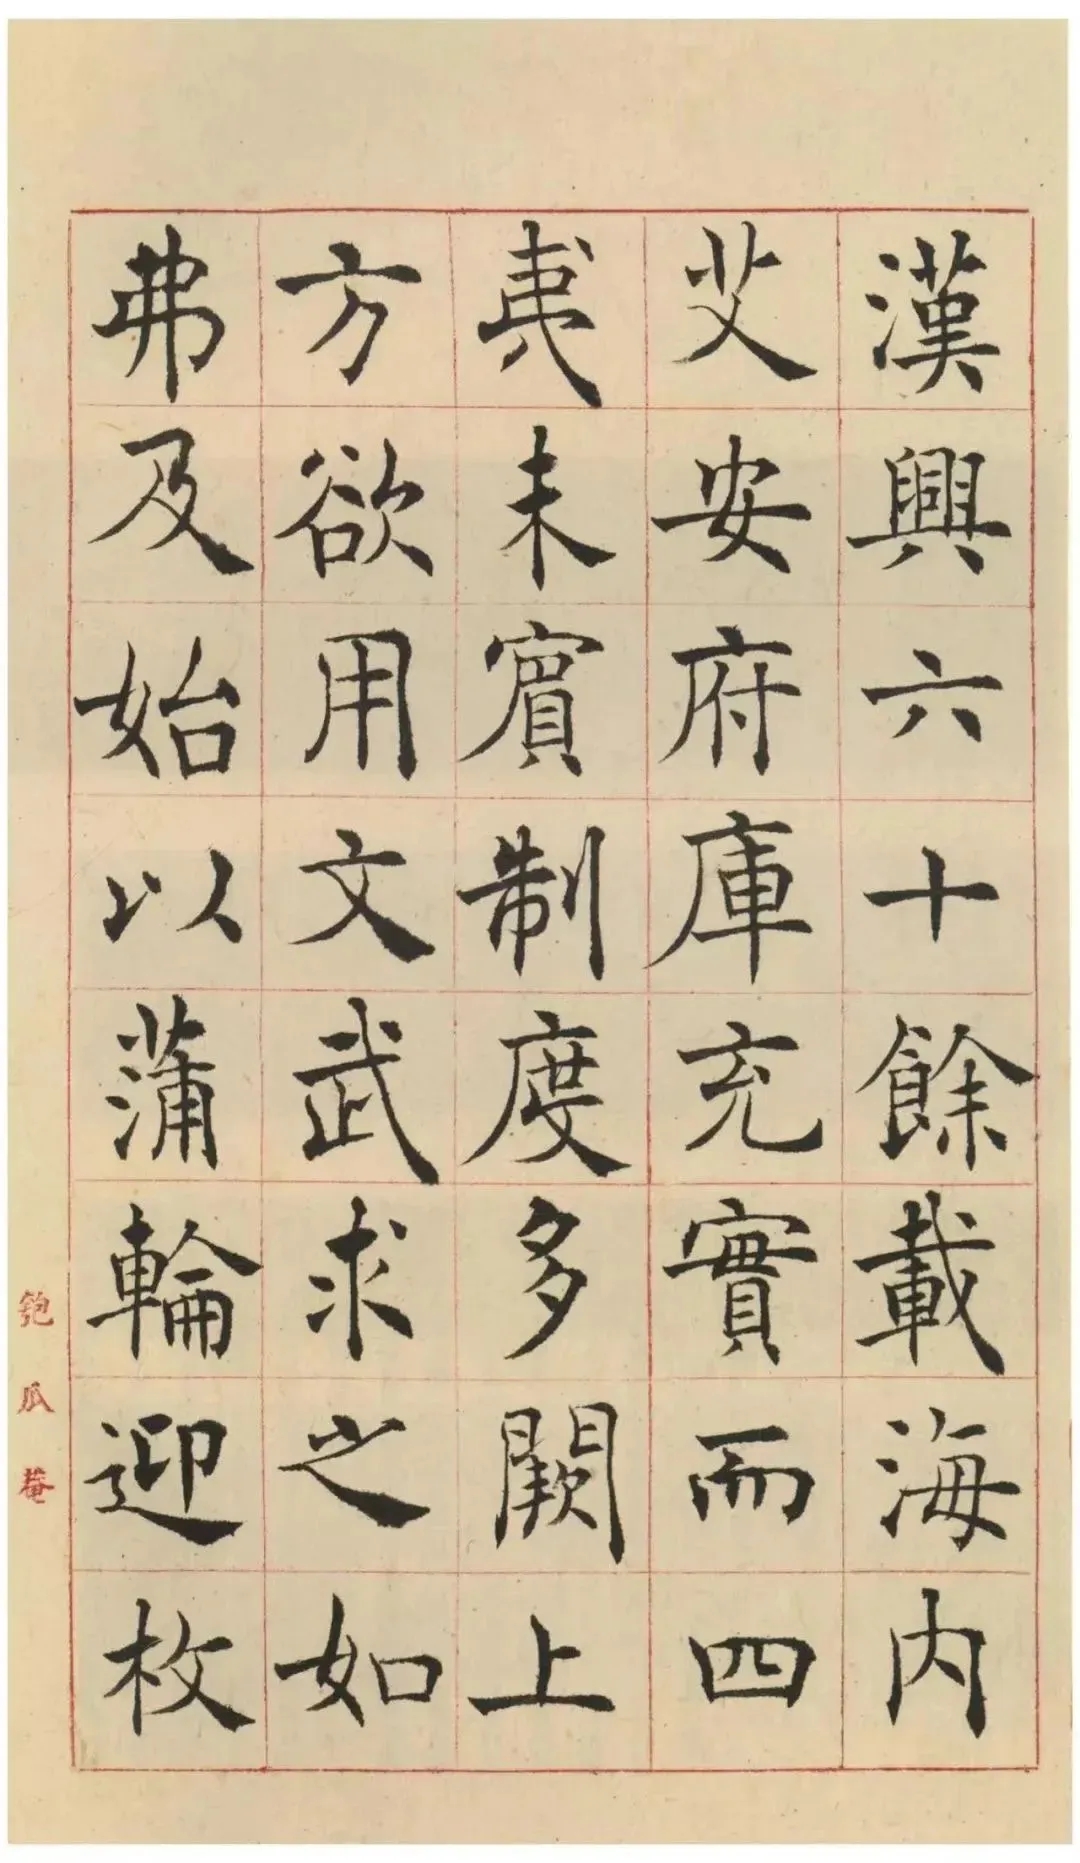 漢興六十餘載海内
艾安府庫充實而四
夷未賓制度多闕上
方欲用文武求之如
弗及始以蒲輪迎枚
匏瓜菴